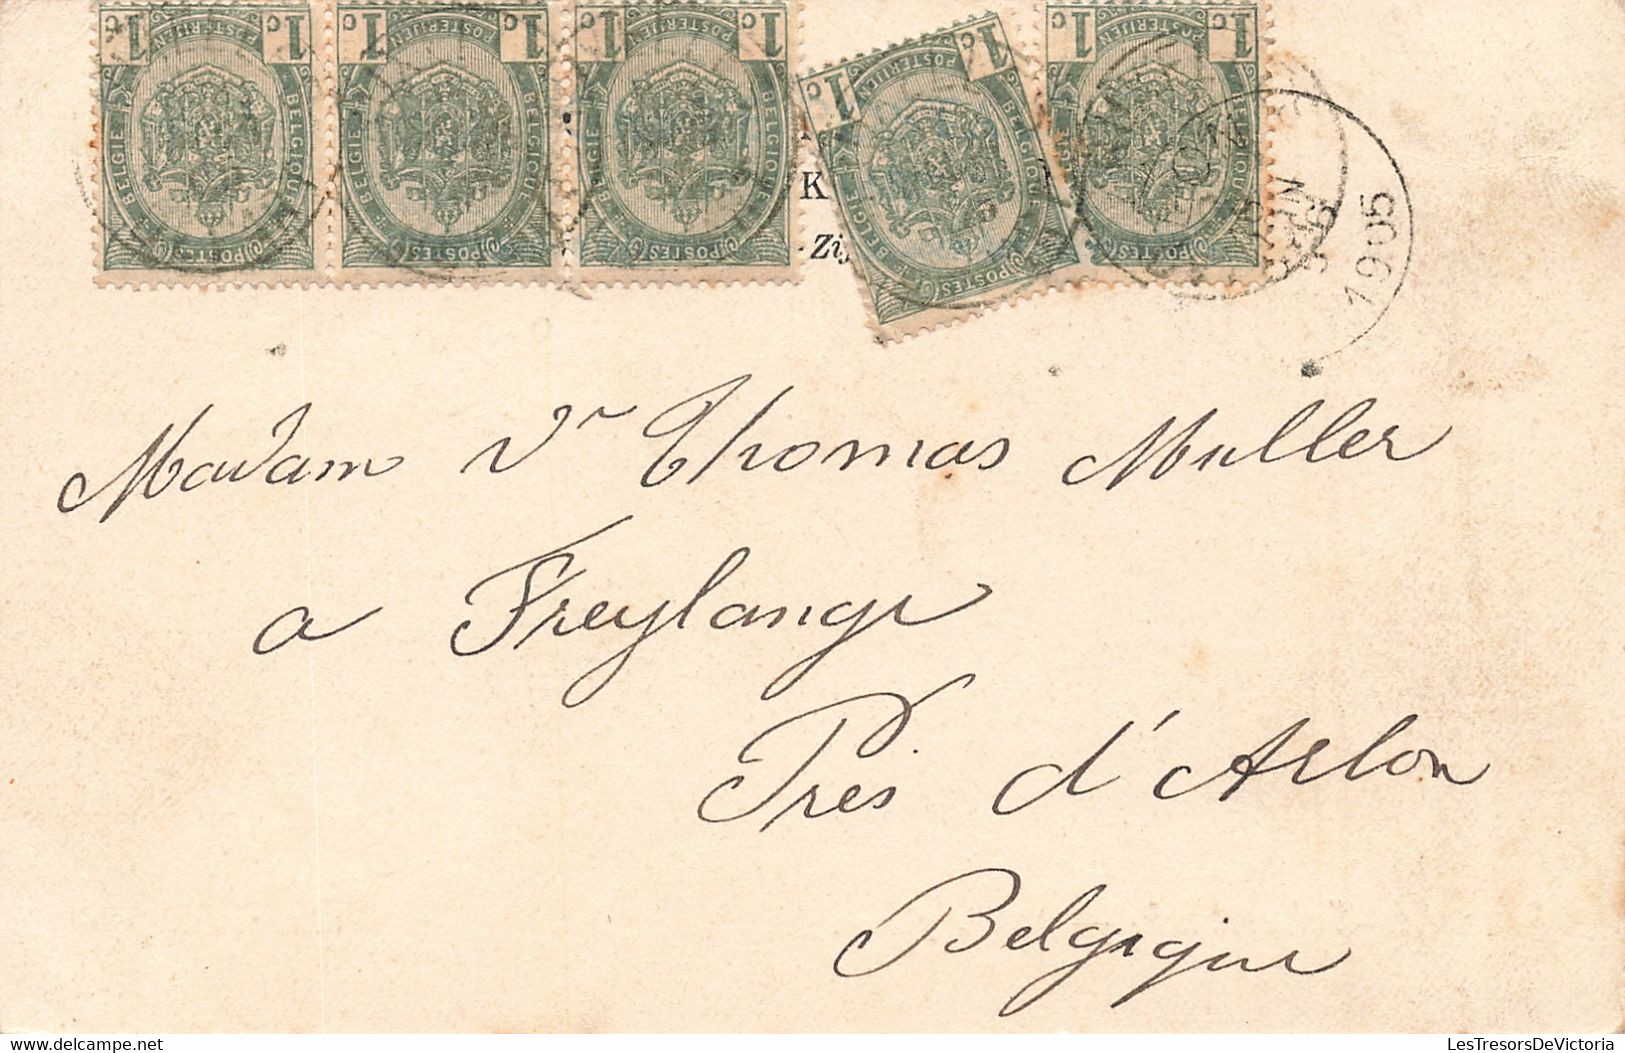 1c 1c 1c 1c 1c 1c 1c 1c 1c 1c
POSTERIJEN POSTERIJEN POSTERIJEN POSTERIJEN POSTERIJEN
BELGIE BELGIQUE BELGIE BELGIQUE BELGIE BELGIQUE BELGIE BELGIQUE BELGIQUE
POSTES POSTES POSTES POSTES POSTES
K
Zij
1905
Madam Vr Thomas Muller
a Freylange
Près d'Arlon
Belgique
LesTresorsDeVictoria